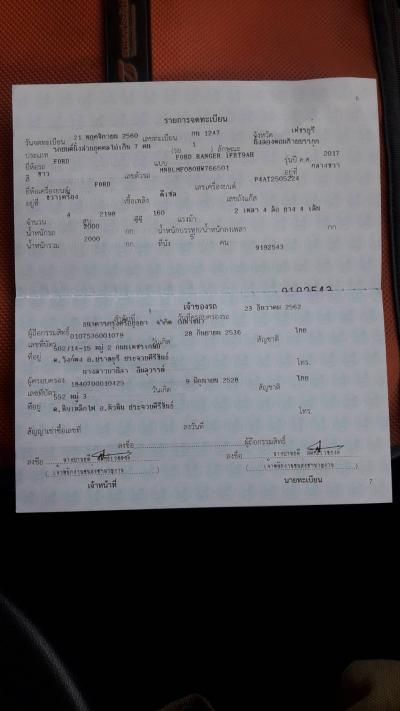 6
รายการจดทะเบียน
วันจดทะเบียน 21 พฤศจิกายน 2560 เลขทะเบียน กน 1247 จังหวัด เพชรบุรี
ประเภท รถยนต์นั่งส่วนบุคคลไม่เกิน 7 คน (รย. 1 ) ลักษณะ
ยี่ห้อรถ FORD แบบ FORD RANGER รุ่นปี ค.ศ. 2017
สี ขาว เลขตัวรถ อยู่ที่
ยี่ห้อเครื่องยนต์ FORD เลขเครื่องยนต์ P4AT2505224
อยู่ที่ ขวาเครื่อง เชื้อเพลิง ดีเซล เลขถังแก๊ส
จำนวน 4 สูบ 2198 ซีซี 160 แรงม้า 2 เพลา 4 ล้อ ยาง 4 เส้น
น้ำหนักรถ 2000 กก. น้ำหนักบรรทุก/น้ำหนักลงเพลา กก.
น้ำหนักรวม 2000 กก. ที่นั่ง คน
9192543
9192543
เจ้าของรถ
ลำดับที่ 1 วันที่ครอบครองรถ 23 ธันวาคม 2562
ผู้ถือกรรมสิทธิ์ ธนาคารกรุงศรีอยุธยา จำกัด (มหาชน)
เลขที่บัตร 0107536001079 วันเกิด 28 กันยายน 2536 สัญชาติ ไทย
ที่อยู่ 502/14-15 หมู่ 2
อ.ปราณบุรี ประจวบคีรีขันธ์ โทร.
ผู้ครอบครอง
เลขที่บัตร 1840700010425 วันเกิด 9 มิถุนายน 2528 สัญชาติ ไทย
ที่อยู่ 592 หมู่ 3
อ.หัวหิน ประจวบคีรีขันธ์ โทร.
สัญญาเช่าซื้อเลขที่ ลงวันที่
ลงชื่อ ผู้ถือกรรมสิทธิ์
ลงชื่อ ลงชื่อ
เจ้าหน้าที่ นายทะเบียน
7